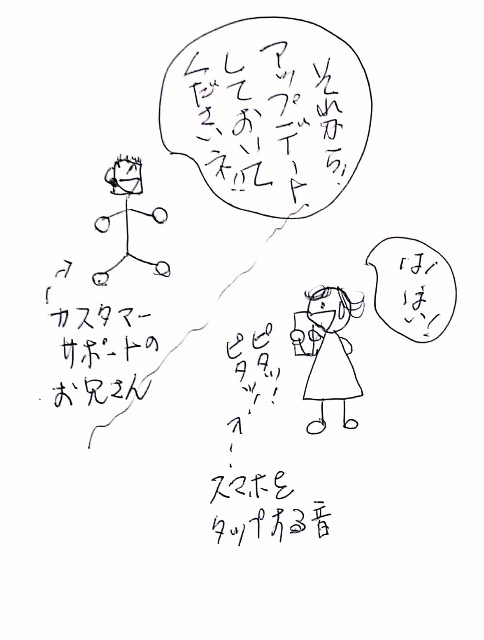 それから!
アップデート
しておいて
くださいネ!!
カスタマー
サポートの
お兄さん
はい
はい!
ピタッ!
ピタッ!
スマホを
タップする音